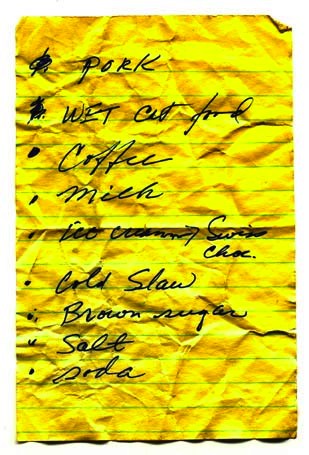 PORK
WET cat food
Coffee
milk
ice cream → Swiss
choc.
Cold Slaw
Brown sugar
Salt
soda